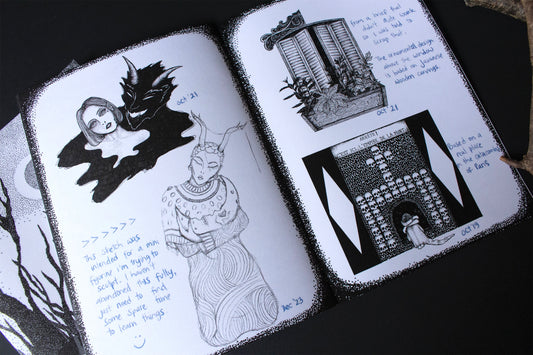 OCT '21
>>>>>>>
This sketch was
intended for a mini
figurine I'm trying to
sculpt. I haven't
abandoned this fully,
just need to find
some spare time
to learn things
:)
Dec '23
From a brief that
didn't quite work
so I was told to
scrap that.
The ornamental design
above the window
is based on Javanese
wooden carvings
OCT 21
ARRÊTE!
C'EST ICI L'EMPIRE DE LA MORT
Based on a
real place
in the catacombs
of Paris
OCT 19